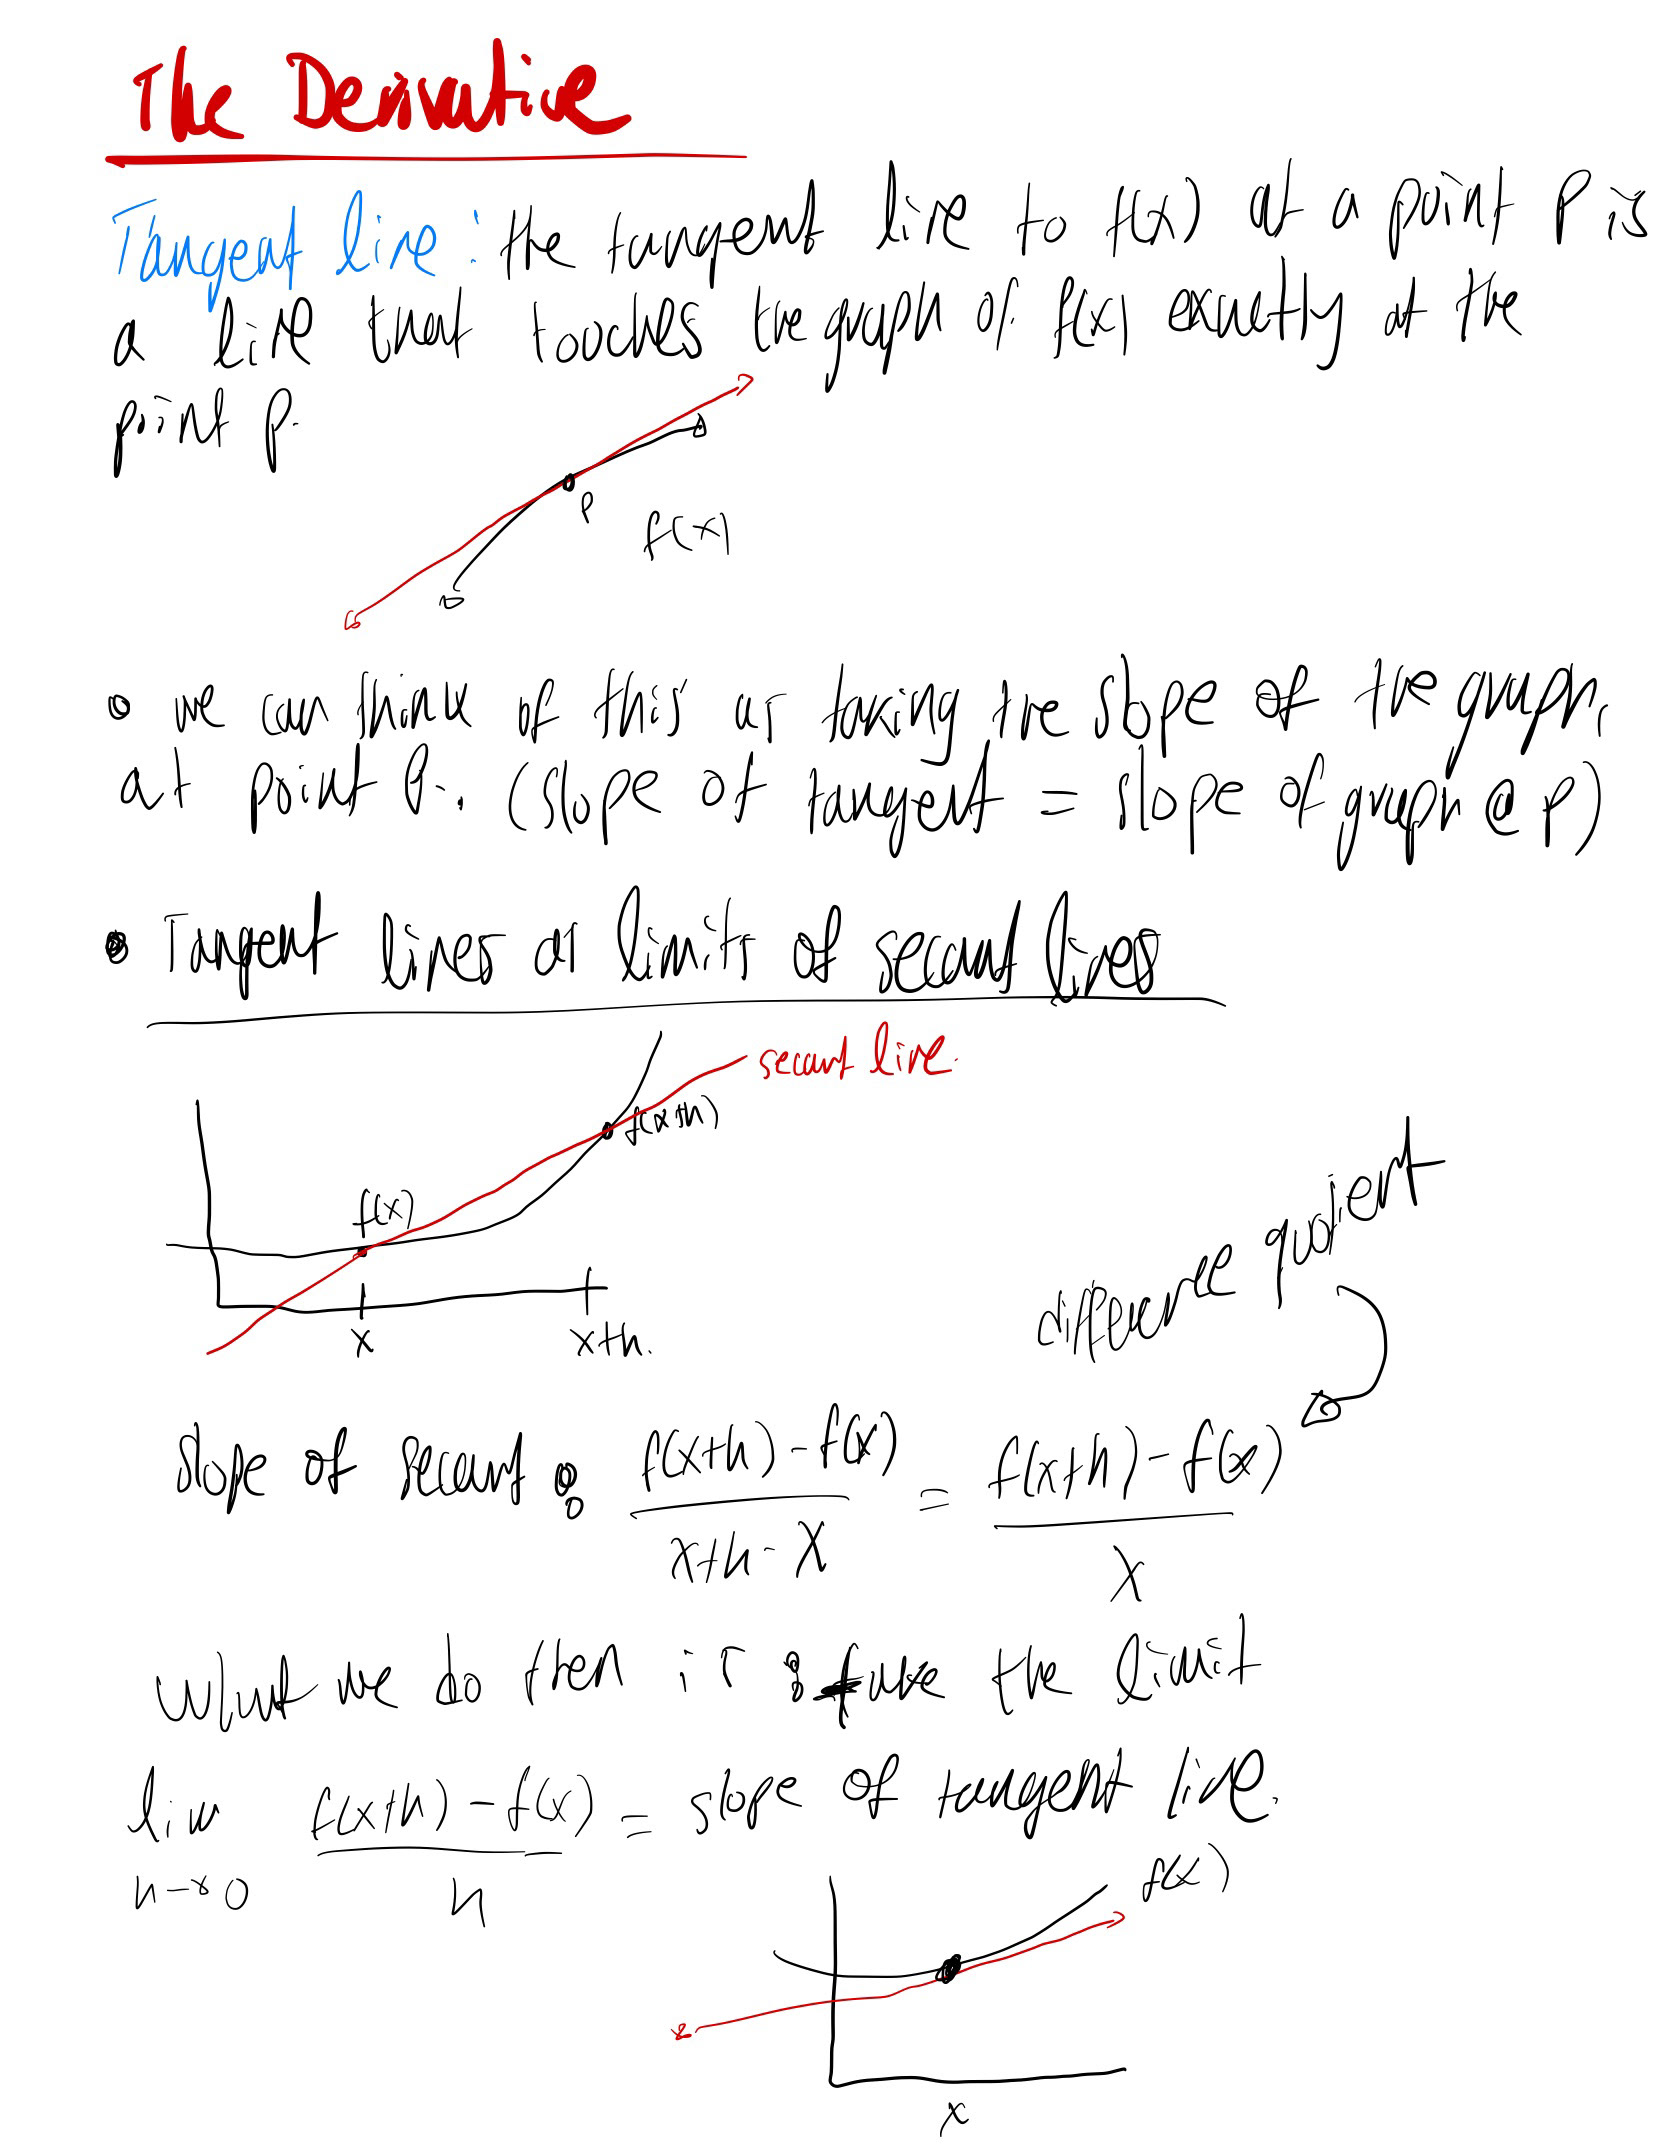 The Derivative
Tangent line: the tangent line to f(x) at a point P is
a line that touches the graph of f(x) exactly at the
point P.
P
f(x)
we can think of this as taking the slope of the graph,
at point P. (slope of tangent = slope of graph @ P)
Tangent lines as limits of secant lines
secant line.
f(x+h)
f(x)
x
x+h.
difference quotient
slope of secant: f(x+h)-f(x) / x+h-x = f(x+h)-f(x) / x
What we do then is: take the limit
lim h→0 f(x+h)-f(x) / h = slope of tangent line.
f(x)
x